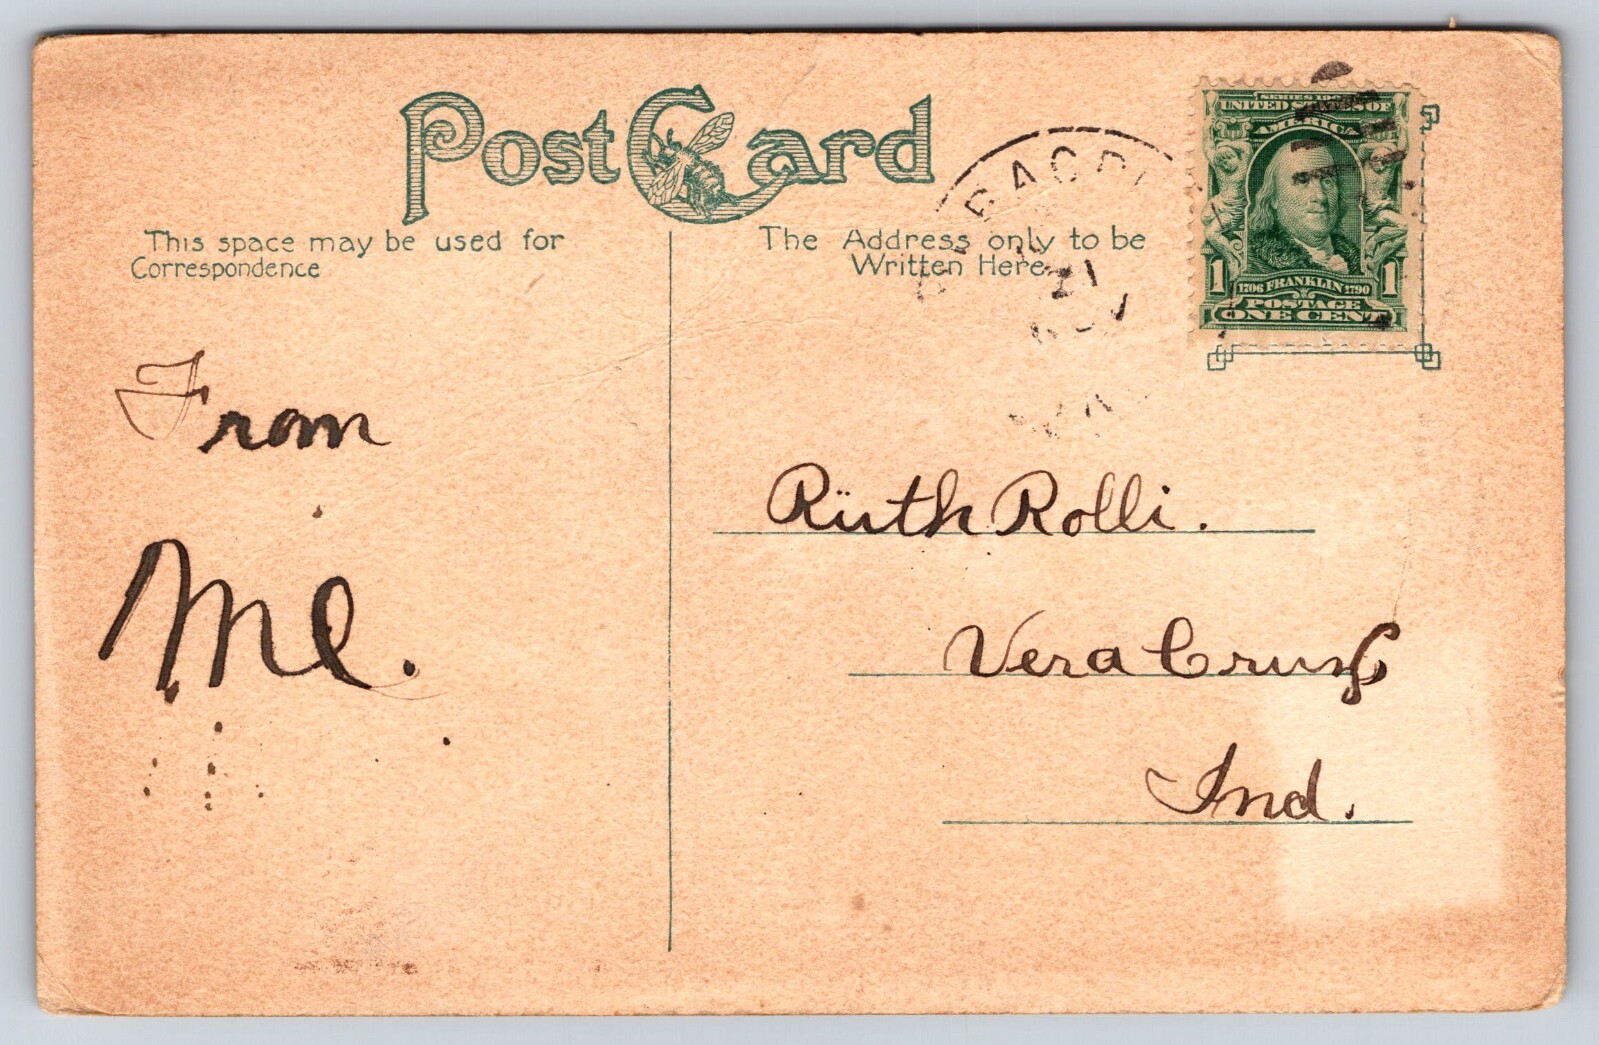 Post Card
This space may be used for
Correspondence
The Address only to be
Written Here
SERIES 1902
UNITED STATES OF
AMERICA
1 1
1706 FRANKLIN 1790
POSTAGE
ONE CENT
21
NOV
From
Me.
Ruth Rolli.
Vera Cruz
Ind.